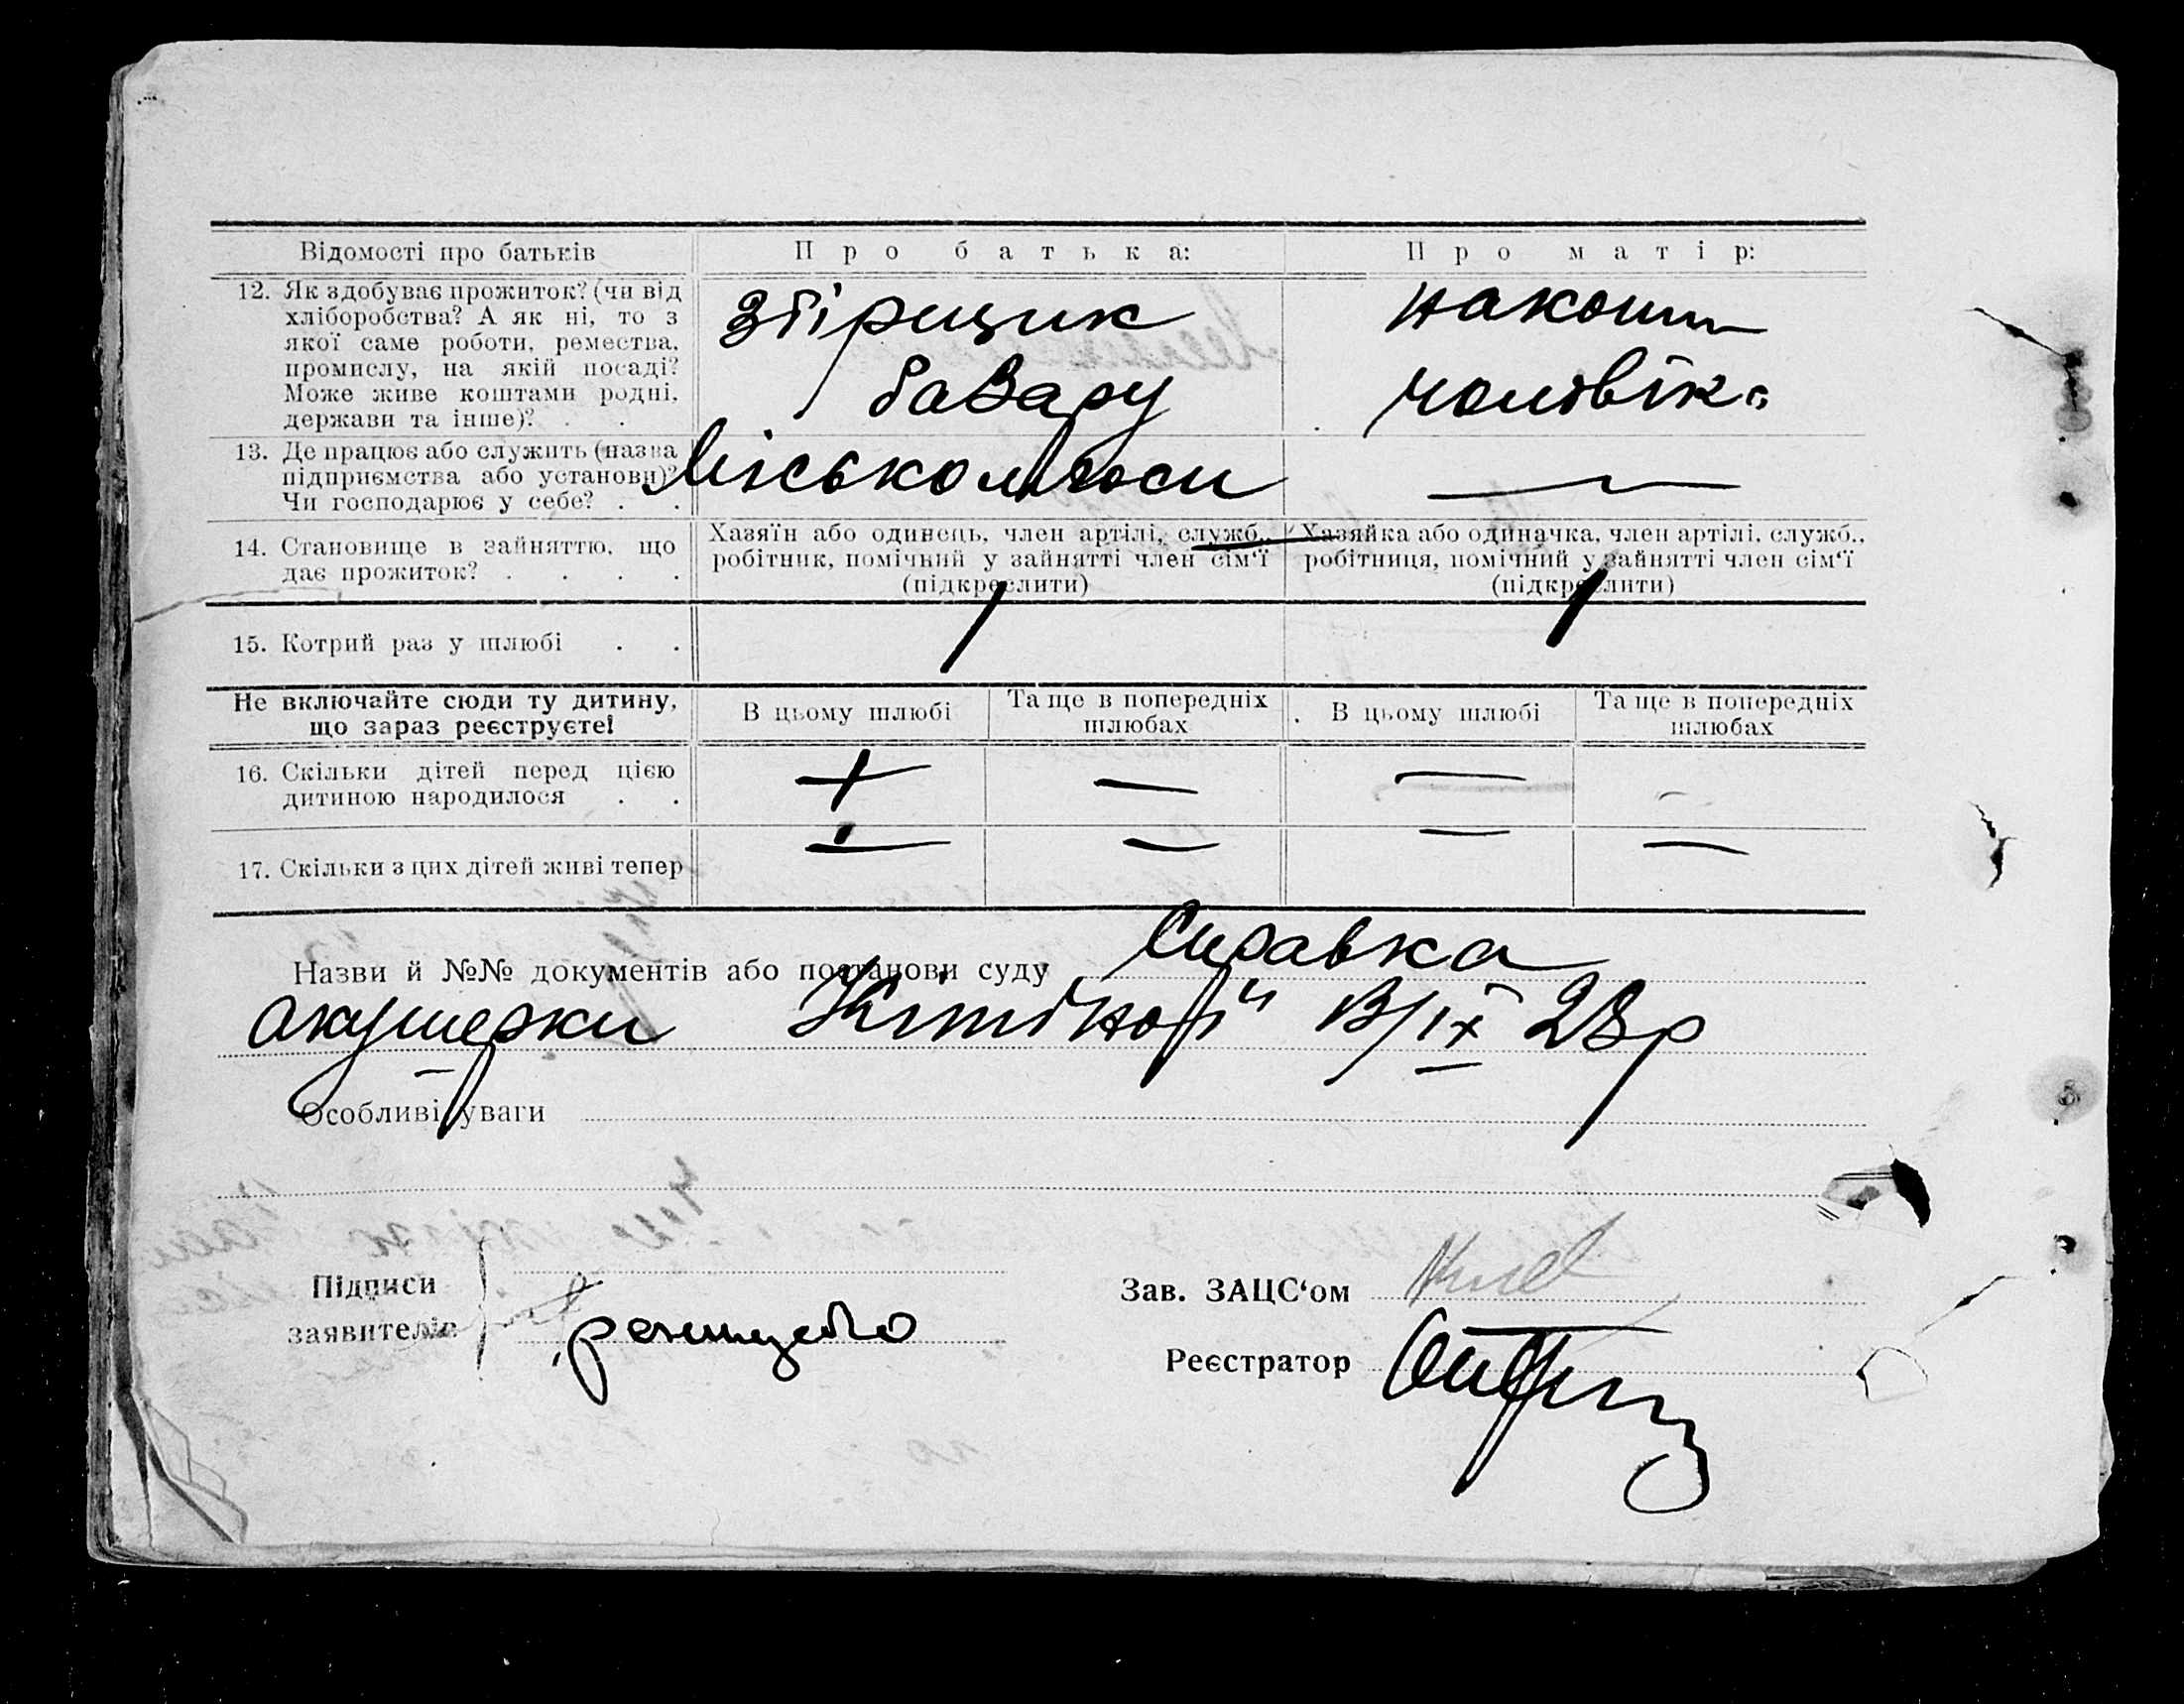 Відомості про батьків
Про батька:
Про матір:
12. Як здобуває прожиток? (чи від
хліборобства? А як ні, то з
якої саме роботи, ремества,
промислу, на якій посаді?
Може живе коштами родні,
держави та інше)? . .
збірщик
базару
на кошти
чоловіка
13. Де працює або служить (назва
підприємства або установи)?
Чи господарює у себе? . .
14. Становище в зайняттю, що
дає прожиток? . . . .
Хазяїн або одинець, член артілі, служб.,
робітник, помічний у зайнятті член сім'ї
(підкреслити)
Хазяйка або одиначка, член артілі, служб.,
робітниця, помічний у зайнятті член сім'ї
(підкреслити)
15. Котрий раз у шлюбі . .
1
1
Не включайте сюди ту дитину,
що зараз реєструєте!
В цьому шлюбі
Та ще в попередніх
шлюбах
В цьому шлюбі
Та ще в попередніх
шлюбах
16. Скільки дітей перед цією
дитиною народилося . .
+ — — -
17. Скільки з цих дітей живі тепер
— — — —
Назви й №№ документів або постанови суду Справка
акушерки 13/IX 28р
Особливі уваги
Підписи
заявителів
Зав. ЗАЦС'ом
Реєстратор